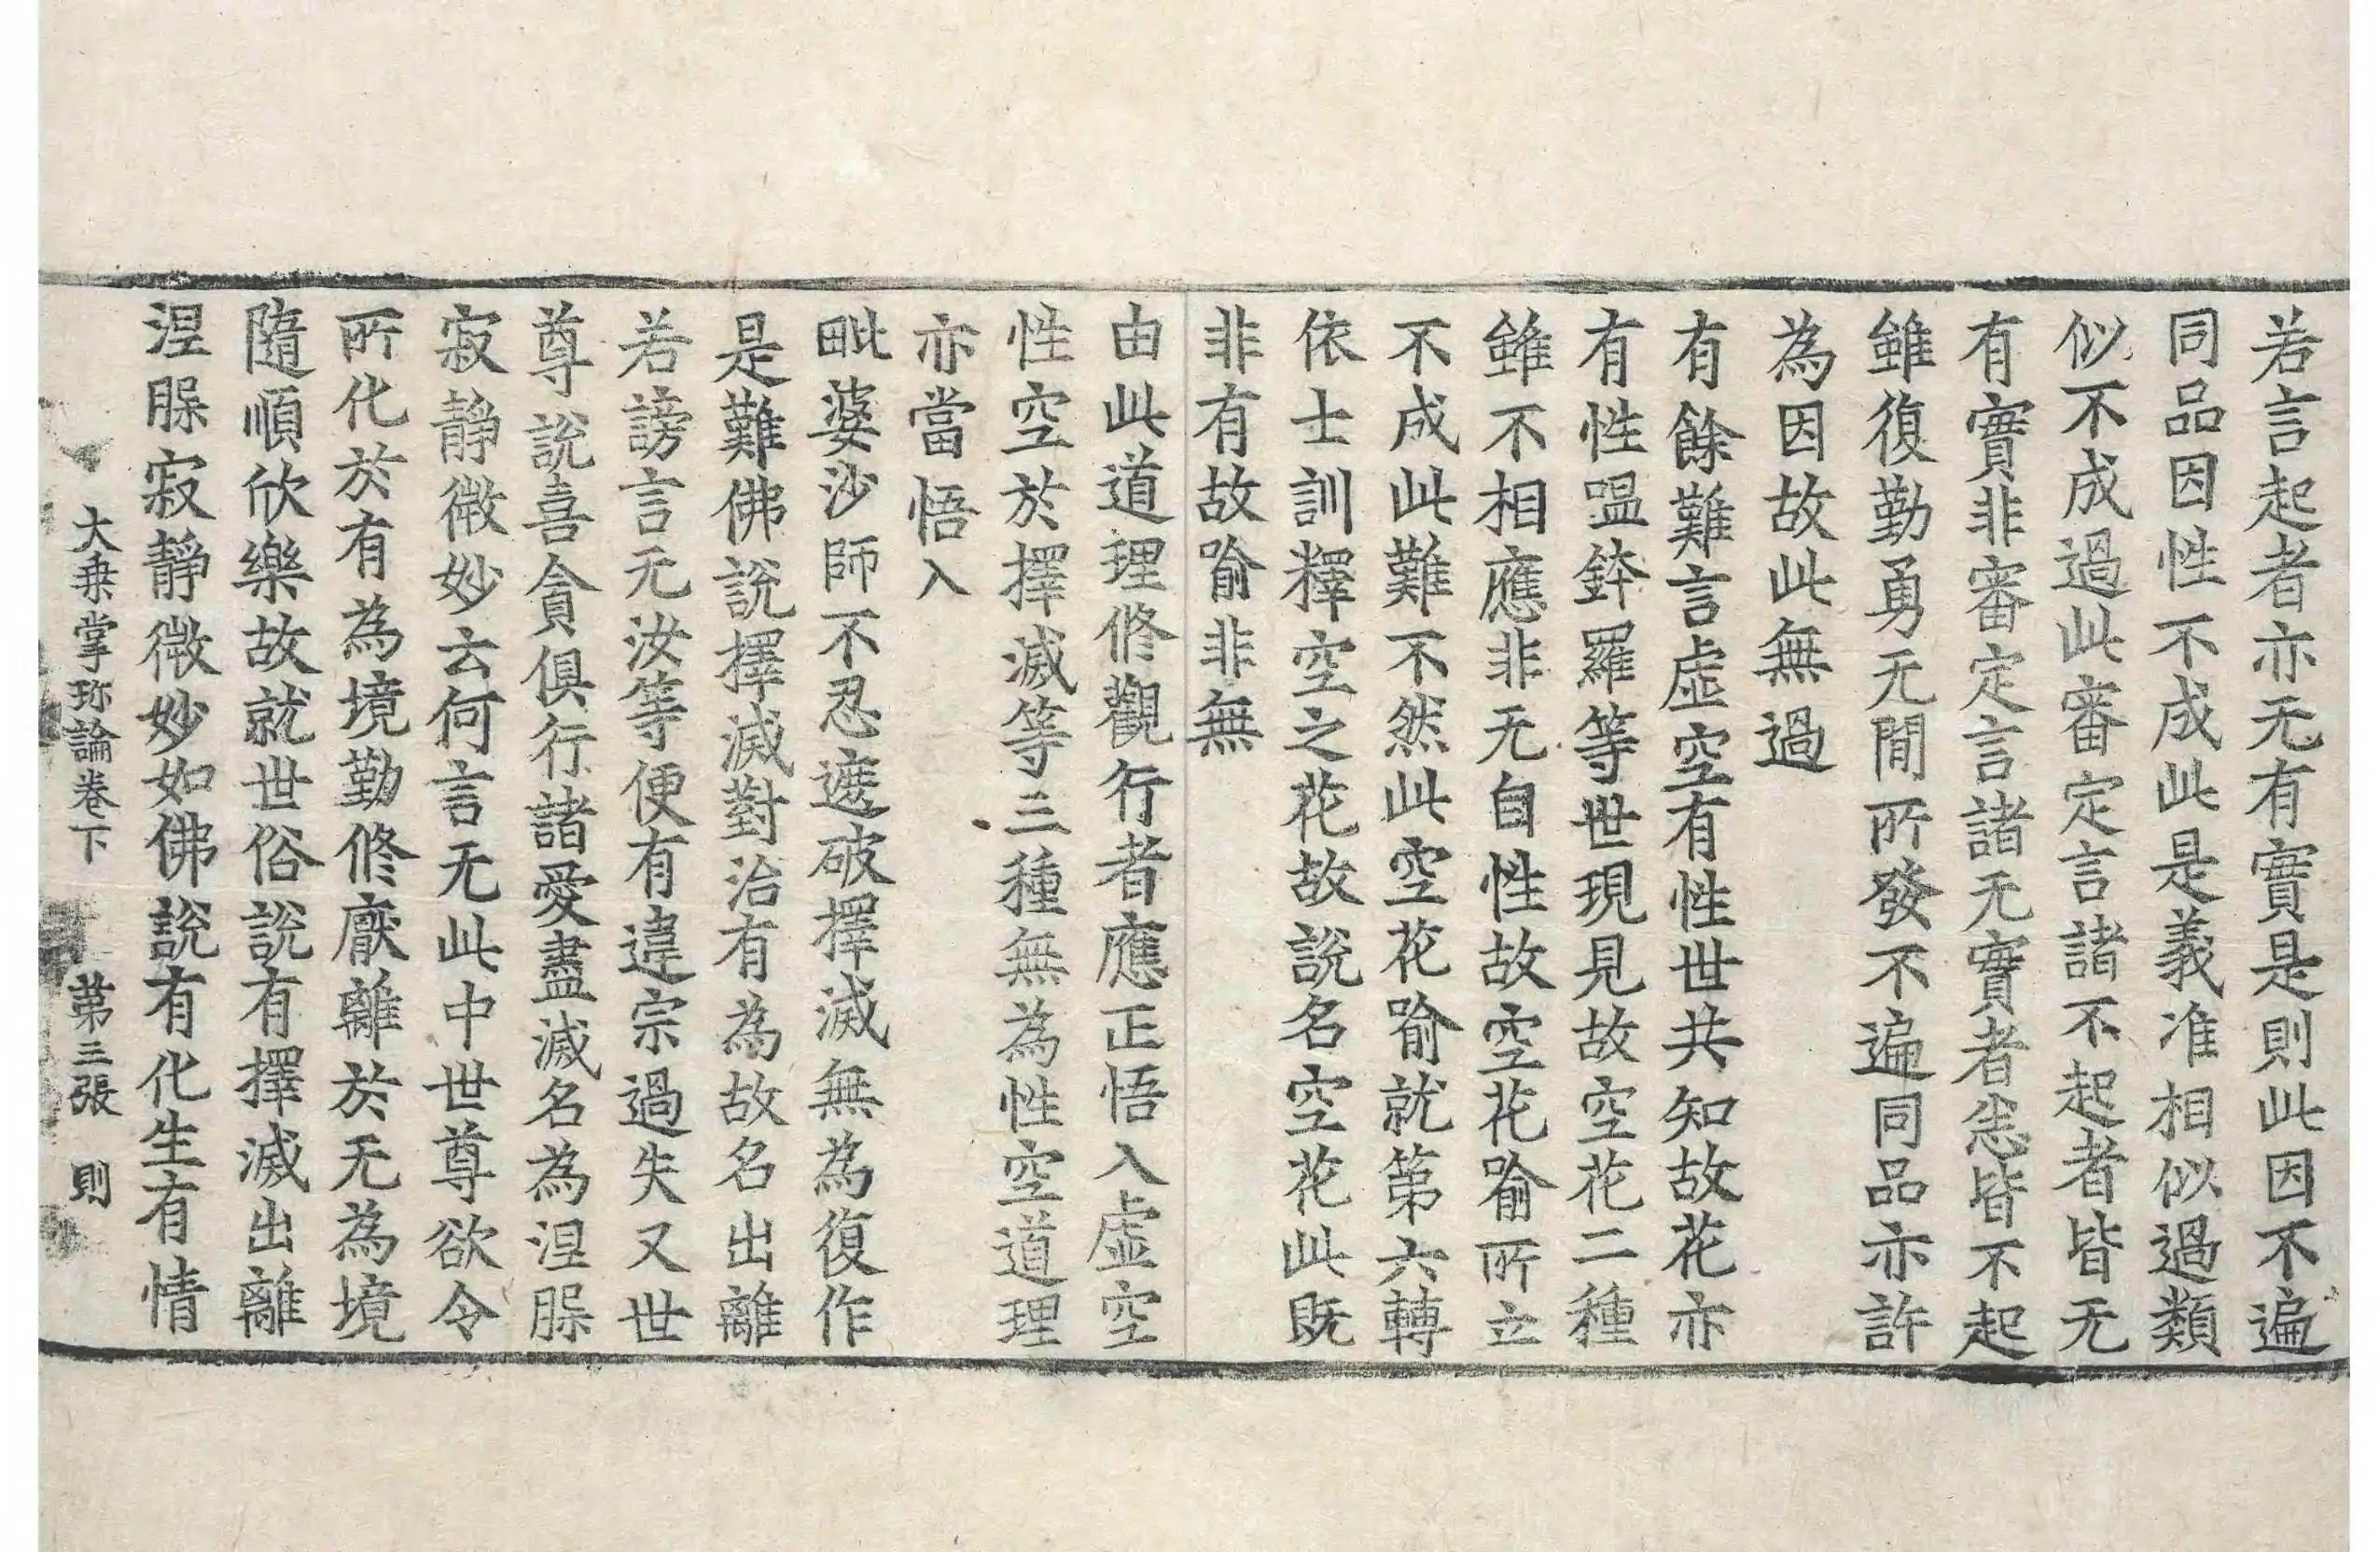 若言起者亦无有實是則此因不遍
同品因性不成此是義准相似過類
似不成過此審定言諸不起者皆无
有實非審定言諸无實者㤀皆不起
雖復勤勇无閒所發不遍同品亦許
為因故此無過
有餘難言虛空有性世共知故花亦
有性嗢鉢羅等世現見故空花二種
雖不相應非无自性故空花喻所立
不成此難不然此空花喻就第六轉
依士訓釋空之花故說名空花此既
非有故喻非無
由此道理修觀行者應正悟入虛空
性空於擇滅等三種無為性空道理
亦當悟入
毗婆沙師不忍遮破擇滅無為復作
是難佛說擇滅對治有為故名出離
若謗言无汝等便有違宗過失又世
尊說喜貪俱行諸愛盡滅名為涅槃
寂靜微妙云何言无此中世尊欲令
所化於有為境勤修厭離於无為境
隨順欣樂故就世俗說有擇滅出離
涅槃寂靜微妙如佛說有化生有情
大乘掌珎論卷下 第三張 則